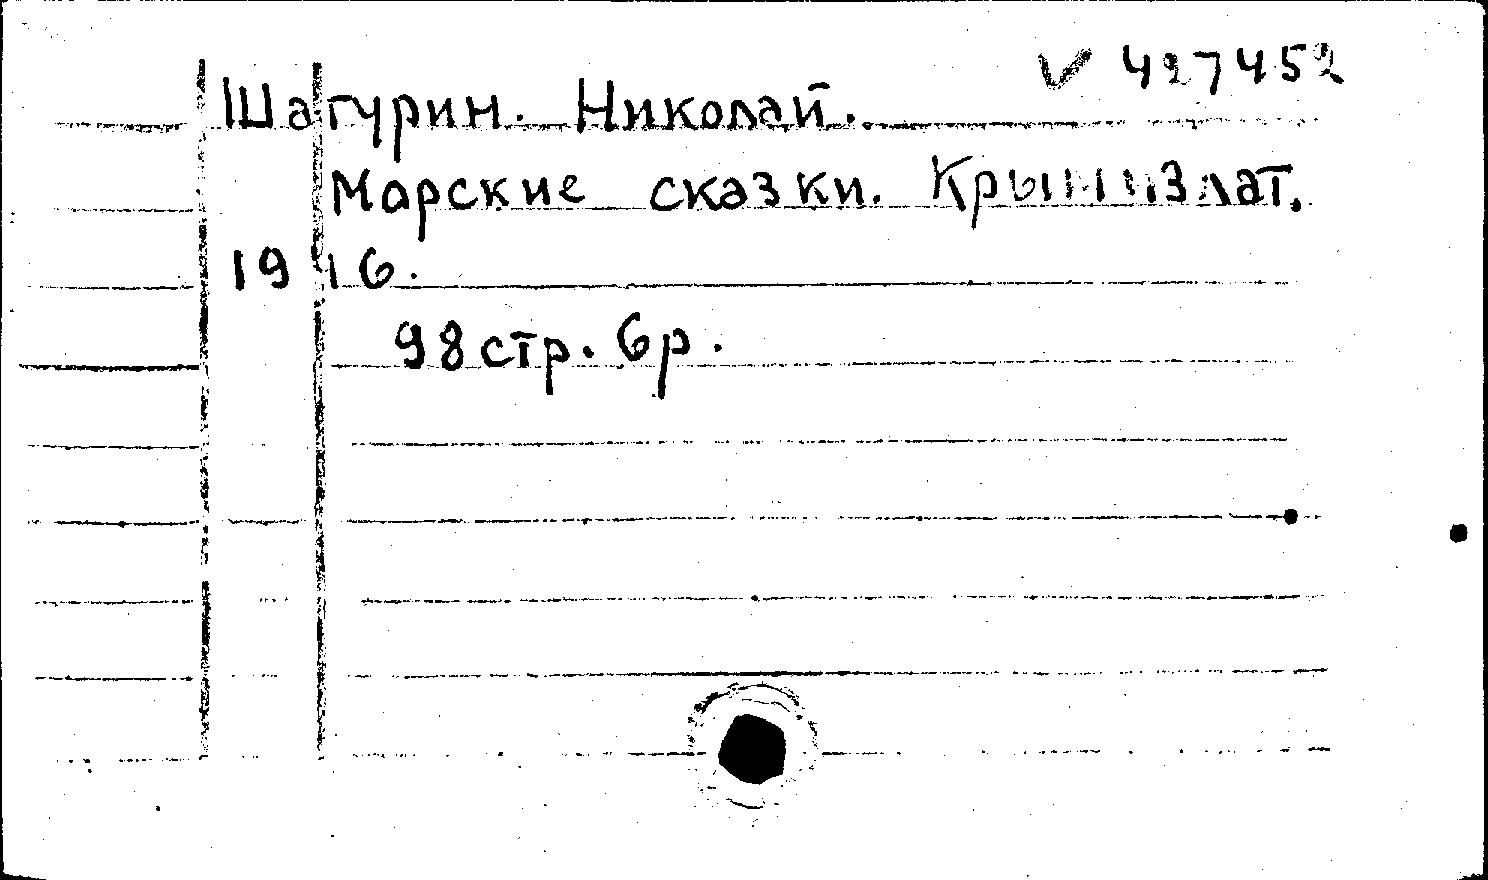 V 427452
Шагурин. Николай.
Морские сказки. Крымиздат.
1946.
98 стр. 6р.